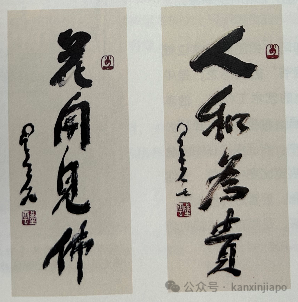 人和為貴
花開見佛
公众号 · kanxinjiapo